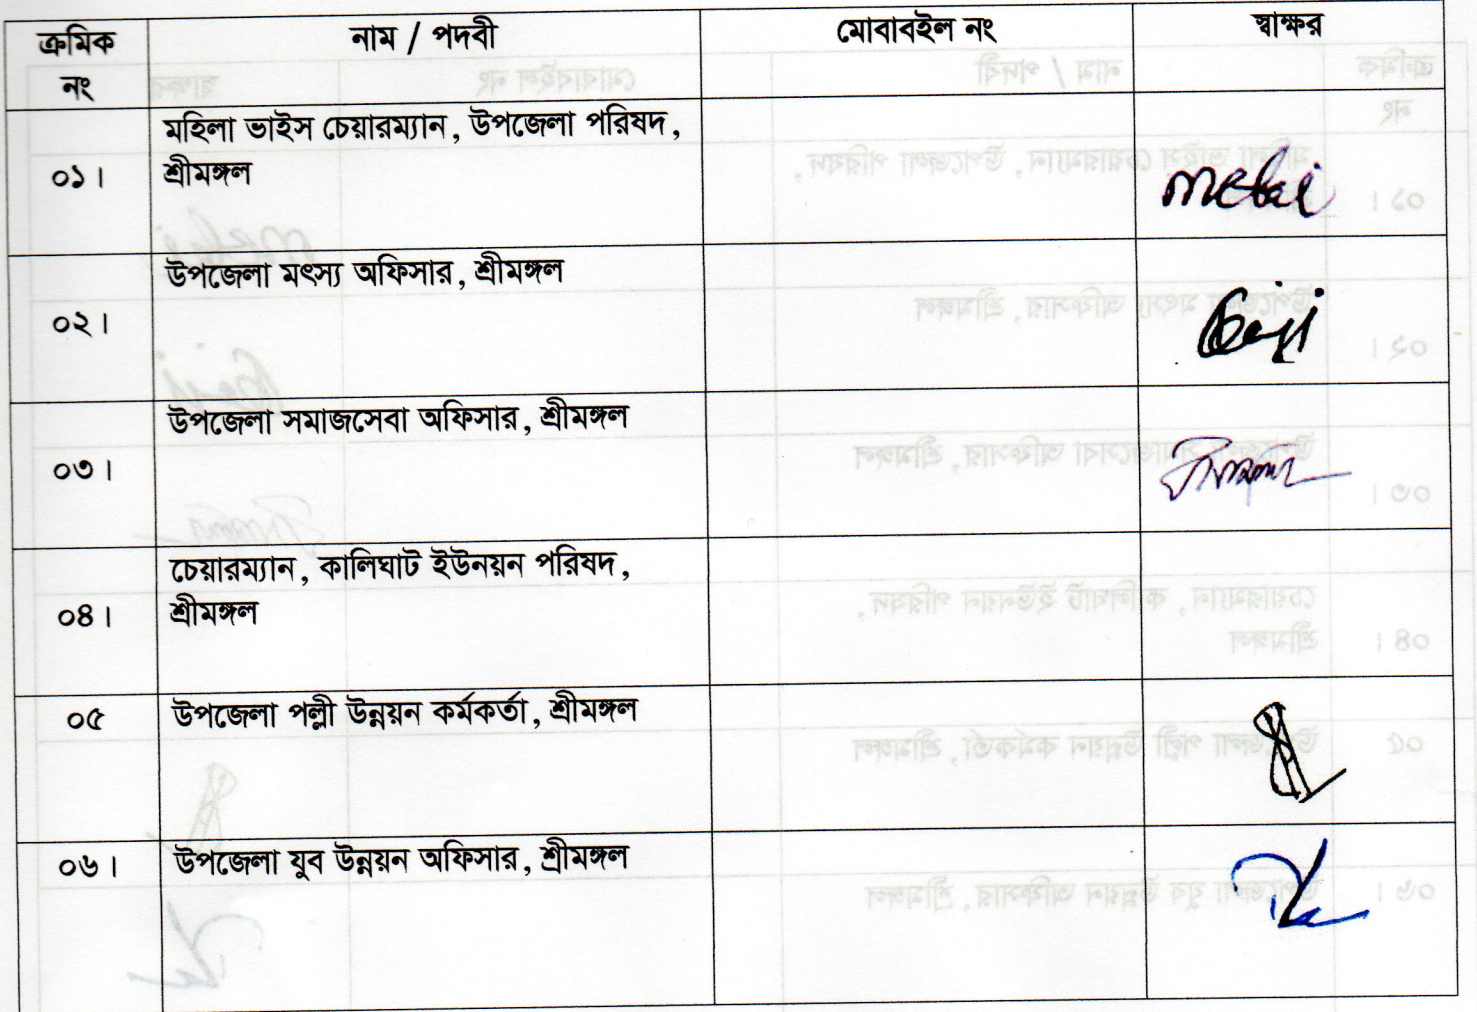 ক্রমিক নং	নাম / পদবী	মোবাবইল নং	স্বাক্ষর
০১।	মহিলা ভাইস চেয়ারম্যান, উপজেলা পরিষদ,
শ্রীমঙ্গল
০২।	উপজেলা মৎস্য অফিসার, শ্রীমঙ্গল
০৩।	উপজেলা সমাজসেবা অফিসার, শ্রীমঙ্গল
০৪।	চেয়ারম্যান, কালিঘাট ইউনয়ন পরিষদ,
শ্রীমঙ্গল
০৫	উপজেলা পল্লী উন্নয়ন কর্মকর্তা, শ্রীমঙ্গল
০৬।	উপজেলা যুব উন্নয়ন অফিসার, শ্রীমঙ্গল